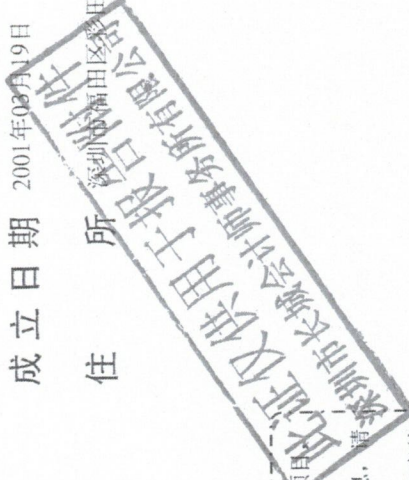 成立日期 2001年03月19日
住所 深圳市福田区彩田
此证仅供用于报告附件
深圳市长城会计师事务所有限公司
项目,
息,请